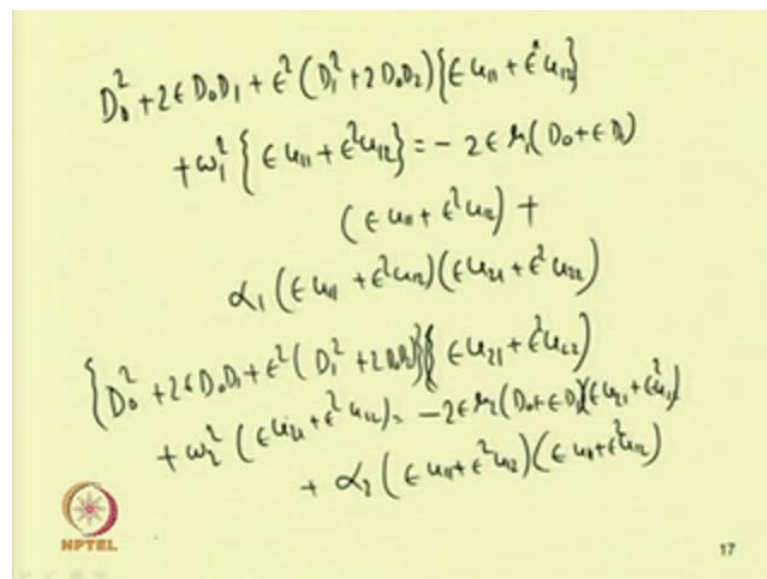 D₀² + 2ϵ D₀D₁ + ϵ² (D₁² + 2D₀D₂) {ϵ u₁₁ + ϵ² u₁₂}
+ ω₁² {ϵ u₁₁ + ϵ² u₁₂} = − 2ϵ μ₁ (D₀ + ϵ D₁)
(ϵ u₁₁ + ϵ² u₁₂) +
α₁ (ϵ u₁₁ + ϵ² u₁₂)(ϵ u₂₁ + ϵ² u₂₂)
{D₀² + 2ϵ D₀D₁ + ϵ² (D₁² + 2D₀D₂)}{ϵ u₂₁ + ϵ² u₂₂)
+ ω₂² (ϵ u₂₁ + ϵ² u₁₂) = −2ϵ μ₂ (D₀ + ϵ D₁)(ϵ u₂₁ + ϵ² u₂₂)
+ α₂ (ϵ u₁₁ + ϵ² u₁₂)(ϵ u₁₁ + ϵ² u₁₂)
NPTEL
17